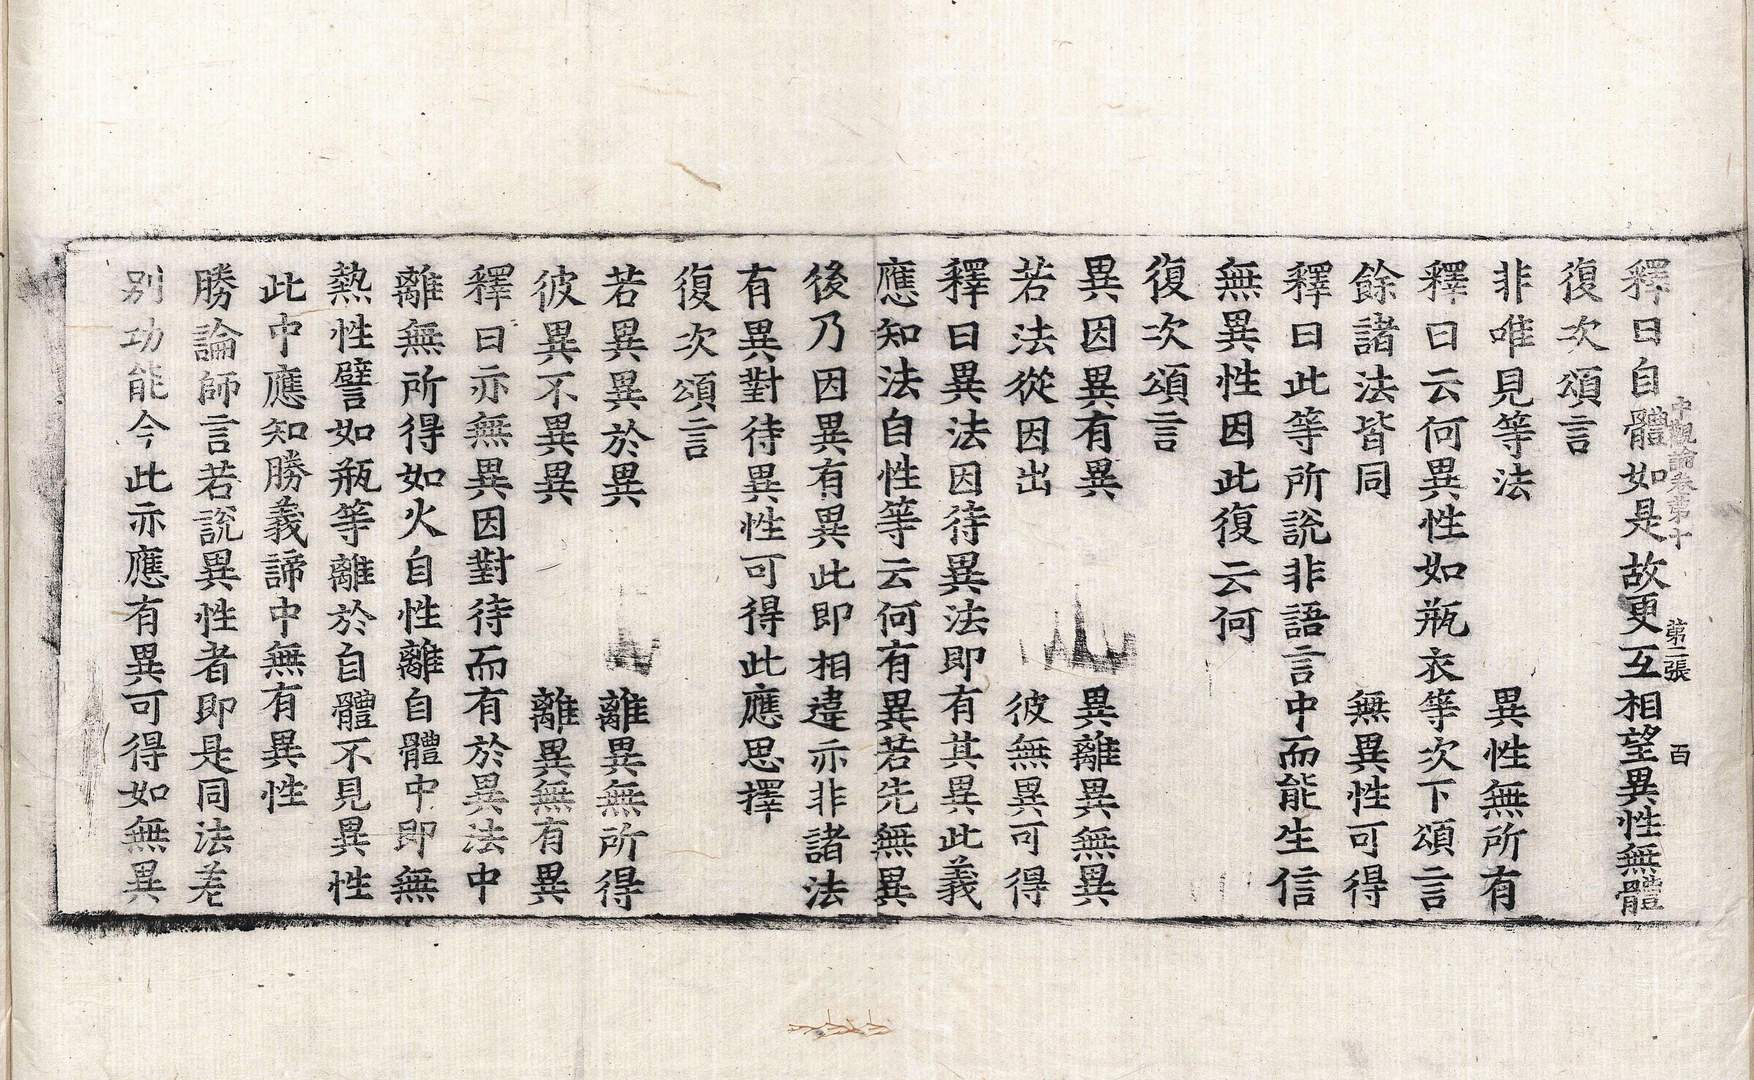 中觀論卷第十 第二張 百
釋曰自體如是故更互相望異性無體
復次頌言
非唯見等法 異性無所有
釋曰云何異性如瓶衣等次下頌言
餘諸法皆同 無異性可得
釋曰此等所說非語言中而能生信
無異性因此復云何
復次頌言
異因異有異 異離異無異
若法從因出 彼無異可得
釋曰異法因待異法即有其異此義
應知法自性等云何有異若先無異
後乃因異有異此即相違亦非諸法
有異對待異性可得此應思擇
復次頌言
若異異於異 離異無所得
彼異不異異 離異無有異
釋曰亦無異因對待而有於異法中
離無所得如火自性離自體中即無
熱性譬如瓶等離於自體不見異性
此中應知勝義諦中無有異性
勝論師言若說異性者即是同法差
別功能今此亦應有異可得如無異